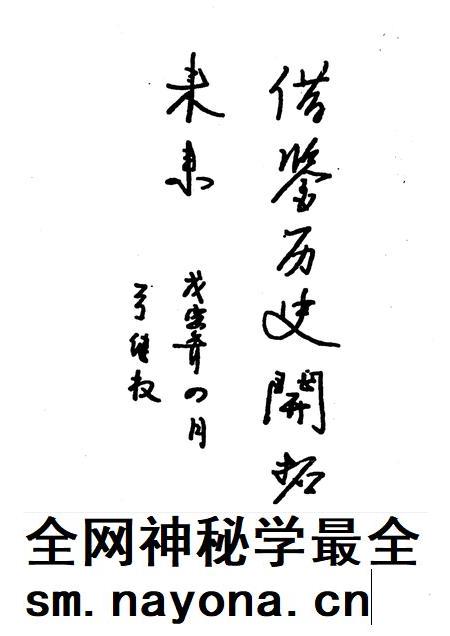 借鉴历史開拓
未来
戊寅年四月
继权
全网神秘学最全
sm.nayona.cn